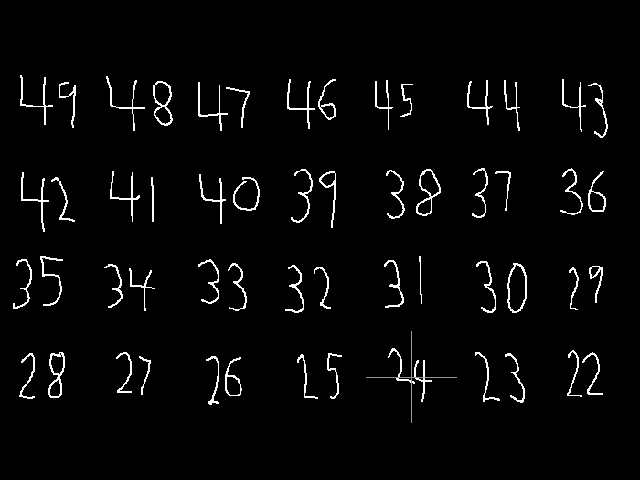 49 48 47 46 45 44 43
42 41 40 39 38 37 36
35 34 33 32 31 30 29
28 27 26 25 24 23 22